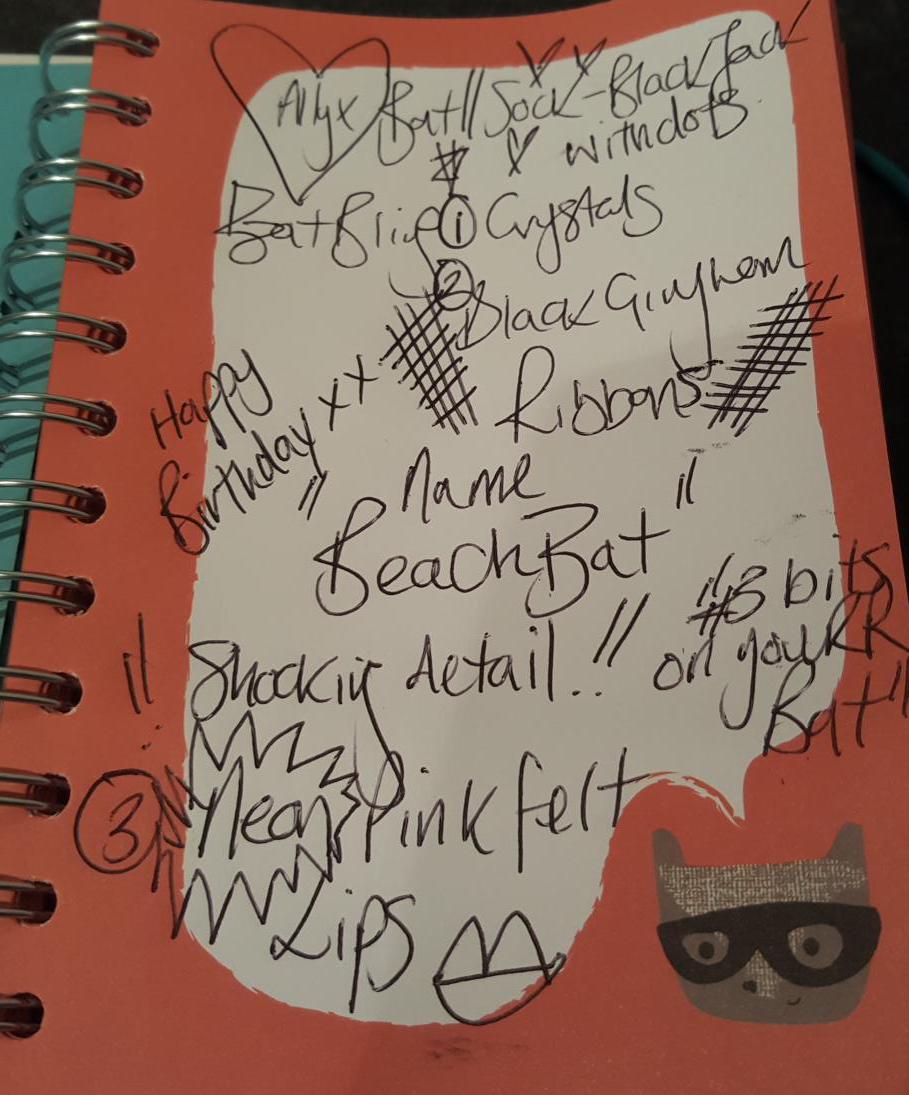 Allyx Bat!! Sock-BlackJack
with dots
Bat ① Crystals
② Black Ginghem
Ribbons
Happy
Birthday xx
Name
"BeachBat"
"#3 bits
on your RR
Bat"
!! Shockin detail..!!
③ Neon Pink felt
Lips